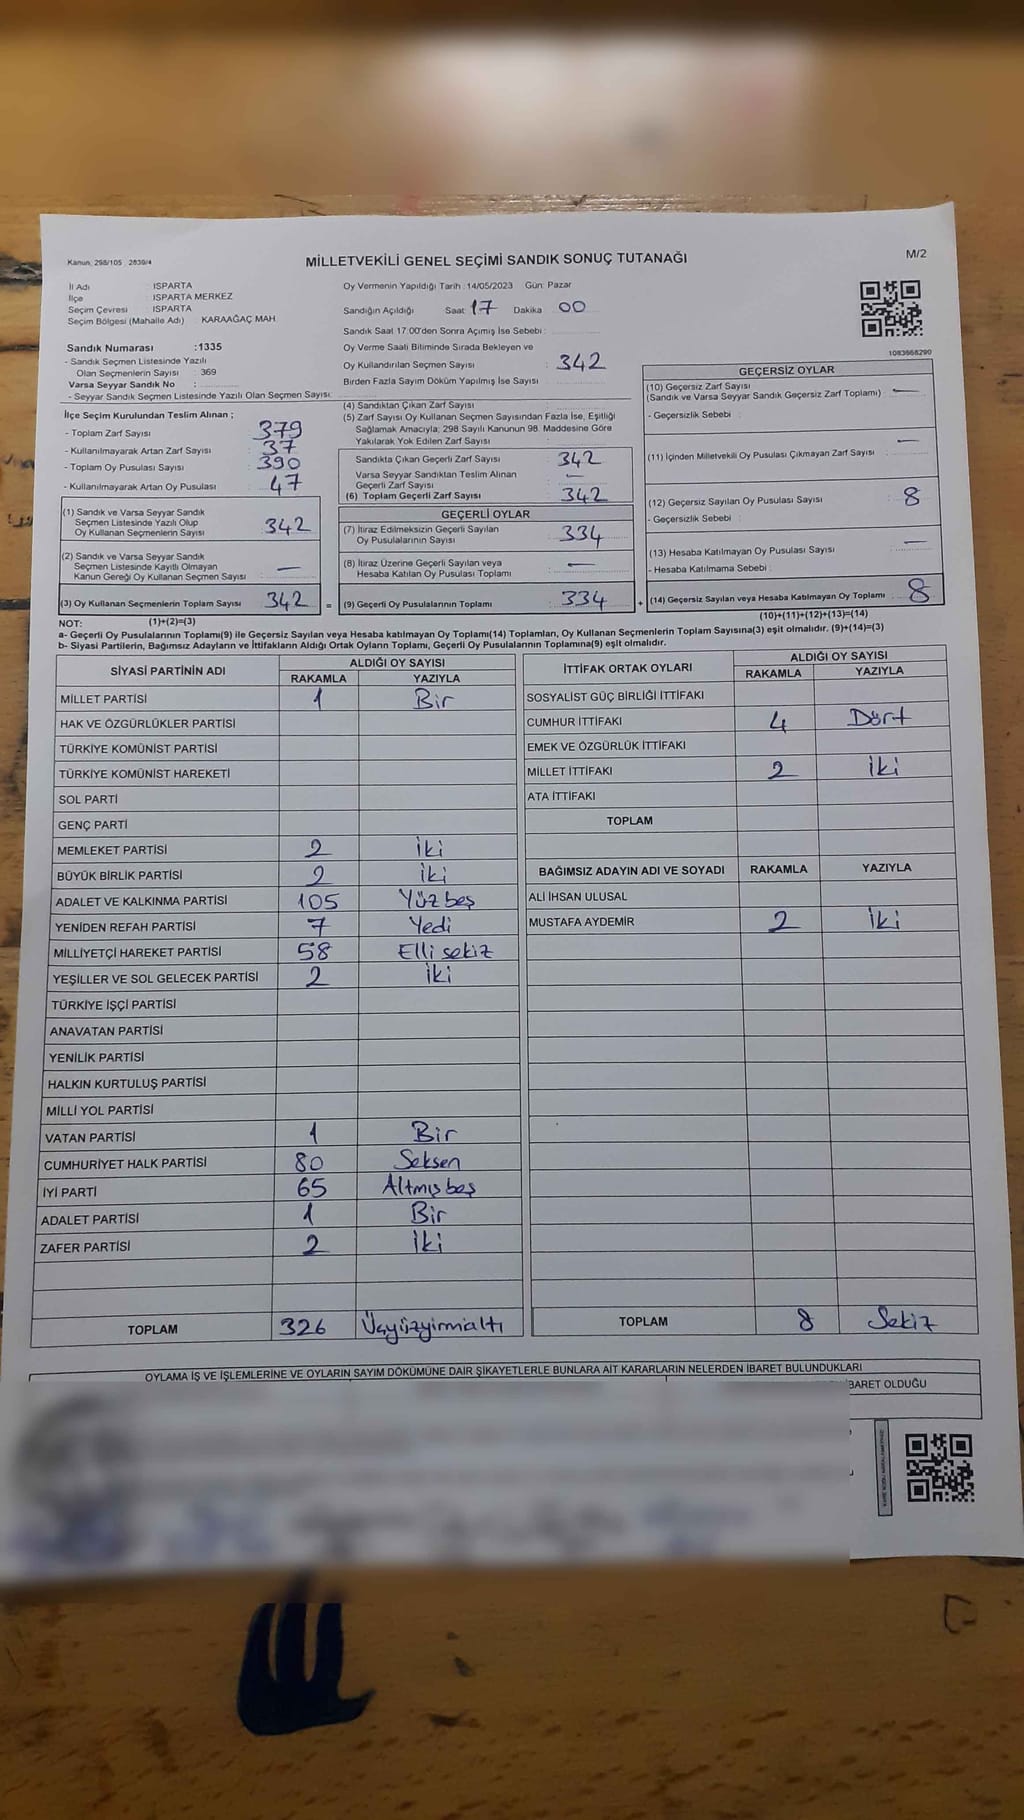 Kanun: 298/105 2839/4
MİLLETVEKİLİ GENEL SEÇİMİ SANDIK SONUÇ TUTANAĞI
M/2
İl Adı : ISPARTA
İlçe : ISPARTA MERKEZ
Seçim Çevresi : ISPARTA
Seçim Bölgesi (Mahalle Adı) KARAAĞAÇ MAH.
Sandık Numarası :1335
- Sandık Seçmen Listesinde Yazılı
Olan Seçmenlerin Sayısı : 369
Varsa Seyyar Sandık No :
- Seyyar Sandık Seçmen Listesinde Yazılı Olan Seçmen Sayısı:
Oy Vermenin Yapıldığı Tarih : 14/05/2023 Gün: Pazar
Sandığın Açıldığı Saat 17 Dakika 00
Sandık Saat 17:00'den Sonra Açımış İse Sebebi :
Oy Verme Saati Bitiminde Sırada Bekleyen ve
Oy Kullandırılan Seçmen Sayısı : 342
Birden Fazla Sayım Döküm Yapılmış İse Sayısı
1083668290
İlçe Seçim Kurulundan Teslim Alınan ;
- Toplam Zarf Sayısı : 379
- Kullanılmayarak Artan Zarf Sayısı : 37
- Toplam Oy Pusulası Sayısı : 390
- Kullanılmayarak Artan Oy Pusulası : 47
(1) Sandık ve Varsa Seyyar Sandık
Seçmen Listesinde Yazılı Olup
Oy Kullanan Seçmenlerin Sayısı : 342
(2) Sandık ve Varsa Seyyar Sandık
Seçmen Listesinde Kayıtlı Olmayan
Kanun Gereği Oy Kullanan Seçmen Sayısı : —
(3) Oy Kullanan Seçmenlerin Toplam Sayısı : 342 =
(4) Sandıktan Çıkan Zarf Sayısı :
(5) Zarf Sayısı Oy Kullanan Seçmen Sayısından Fazla İse, Eşitliği
Sağlamak Amacıyla; 298 Sayılı Kanunun 98. Maddesine Göre
Yakılarak Yok Edilen Zarf Sayısı :
Sandıkta Çıkan Geçerli Zarf Sayısı : 342
Varsa Seyyar Sandıktan Teslim Alınan
Geçerli Zarf Sayısı : —
(6) Toplam Geçerli Zarf Sayısı : 342
GEÇERLİ OYLAR
(7) İtiraz Edilmeksizin Geçerli Sayılan
Oy Pusulalarının Sayısı : 334
(8) İtiraz Üzerine Geçerli Sayılan veya
Hesaba Katılan Oy Pusulası Toplamı : —
(9) Geçerli Oy Pusulalarının Toplamı : 334 +
GEÇERSİZ OYLAR
(10) Geçersiz Zarf Sayısı
(Sandık ve Varsa Seyyar Sandık Geçersiz Zarf Toplamı) : —
- Geçersizlik Sebebi :
(11) İçinden Milletvekili Oy Pusulası Çıkmayan Zarf Sayısı : —
(12) Geçersiz Sayılan Oy Pusulası Sayısı : 8
- Geçersizlik Sebebi :
(13) Hesaba Katılmayan Oy Pusulası Sayısı : —
- Hesaba Katılmama Sebebi :
(14) Geçersiz Sayılan veya Hesaba Katılmayan Oy Toplamı : 8
NOT: (1)+(2)=(3) (10)+(11)+(12)+(13)=(14)
a- Geçerli Oy Pusulalarının Toplamı(9) ile Geçersiz Sayılan veya Hesaba katılmayan Oy Toplamı(14) Toplamları, Oy Kullanan Seçmenlerin Toplam Sayısına(3) eşit olmalıdır. (9)+(14)=(3)
b- Siyasi Partilerin, Bağımsız Adayların ve İttifakların Aldığı Ortak Oyların Toplamı, Geçerli Oy Pusulalarının Toplamına(9) eşit olmalıdır.
SİYASİ PARTİNİN ADI ALDIĞI OY SAYISI
RAKAMLA YAZIYLA
MİLLET PARTİSİ 1 Bir
HAK VE ÖZGÜRLÜKLER PARTİSİ
TÜRKİYE KOMÜNİST PARTİSİ
TÜRKİYE KOMÜNİST HAREKETİ
SOL PARTİ
GENÇ PARTİ
MEMLEKET PARTİSİ 2 İki
BÜYÜK BİRLİK PARTİSİ 2 İki
ADALET VE KALKINMA PARTİSİ 105 Yüz beş
YENİDEN REFAH PARTİSİ 7 Yedi
MİLLİYETÇİ HAREKET PARTİSİ 58 Elli sekiz
YEŞİLLER VE SOL GELECEK PARTİSİ 2 İki
TÜRKİYE İŞÇİ PARTİSİ
ANAVATAN PARTİSİ
YENİLİK PARTİSİ
HALKIN KURTULUŞ PARTİSİ
MİLLİ YOL PARTİSİ
VATAN PARTİSİ 1 Bir
CUMHURİYET HALK PARTİSİ 80 Seksen
İYİ PARTİ 65 Altmış beş
ADALET PARTİSİ 1 Bir
ZAFER PARTİSİ 2 İki
TOPLAM 326 Üçyüzyirmialtı
İTTİFAK ORTAK OYLARI ALDIĞI OY SAYISI
RAKAMLA YAZIYLA
SOSYALİST GÜÇ BİRLİĞİ İTTİFAKI
CUMHUR İTTİFAKI 4 Dört
EMEK VE ÖZGÜRLÜK İTTİFAKI
MİLLET İTTİFAKI 2 İki
ATA İTTİFAKI
TOPLAM
BAĞIMSIZ ADAYIN ADI VE SOYADI RAKAMLA YAZIYLA
ALİ İHSAN ULUSAL
MUSTAFA AYDEMİR 2 İki
TOPLAM 8 Sekiz
OYLAMA İŞ VE İŞLEMLERİNE VE OYLARIN SAYIM DÖKÜMÜNE DAİR ŞİKAYETLERLE BUNLARA AİT KARARLARIN NELERDEN İBARET BULUNDUKLARI
BARET OLDUĞU